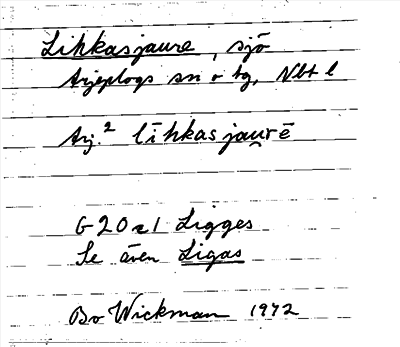 Lihkasjaure, sjö
Arjeplogs sn o tg, Nbt l
Arj.² līhkasjau̯rē
G 20 n 1 Ligges
Se även Ligas
Bo Wickman 1972